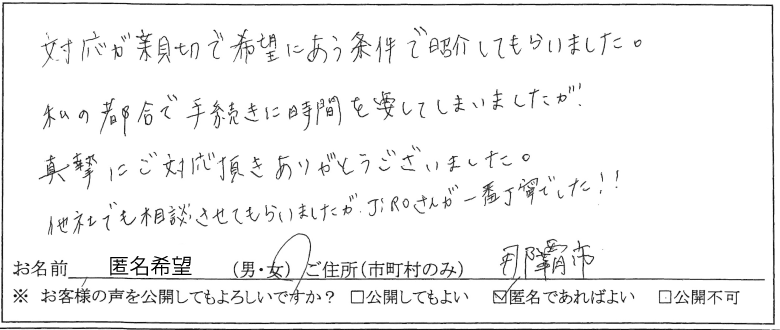 対応が親切で希望にあう条件で紹介してもらいました。
私の都合で手続きに時間を要してしまいましたが、
真摯にご対応頂きありがとうございました。
他社でも相談させてもらいましたが、JiROさんが一番丁寧でした!!
お名前 匿名希望 (男・女) ご住所(市町村のみ) 那覇市
※ お客様の声を公開してもよろしいですか? □公開してもよい ☑匿名であればよい □公開不可